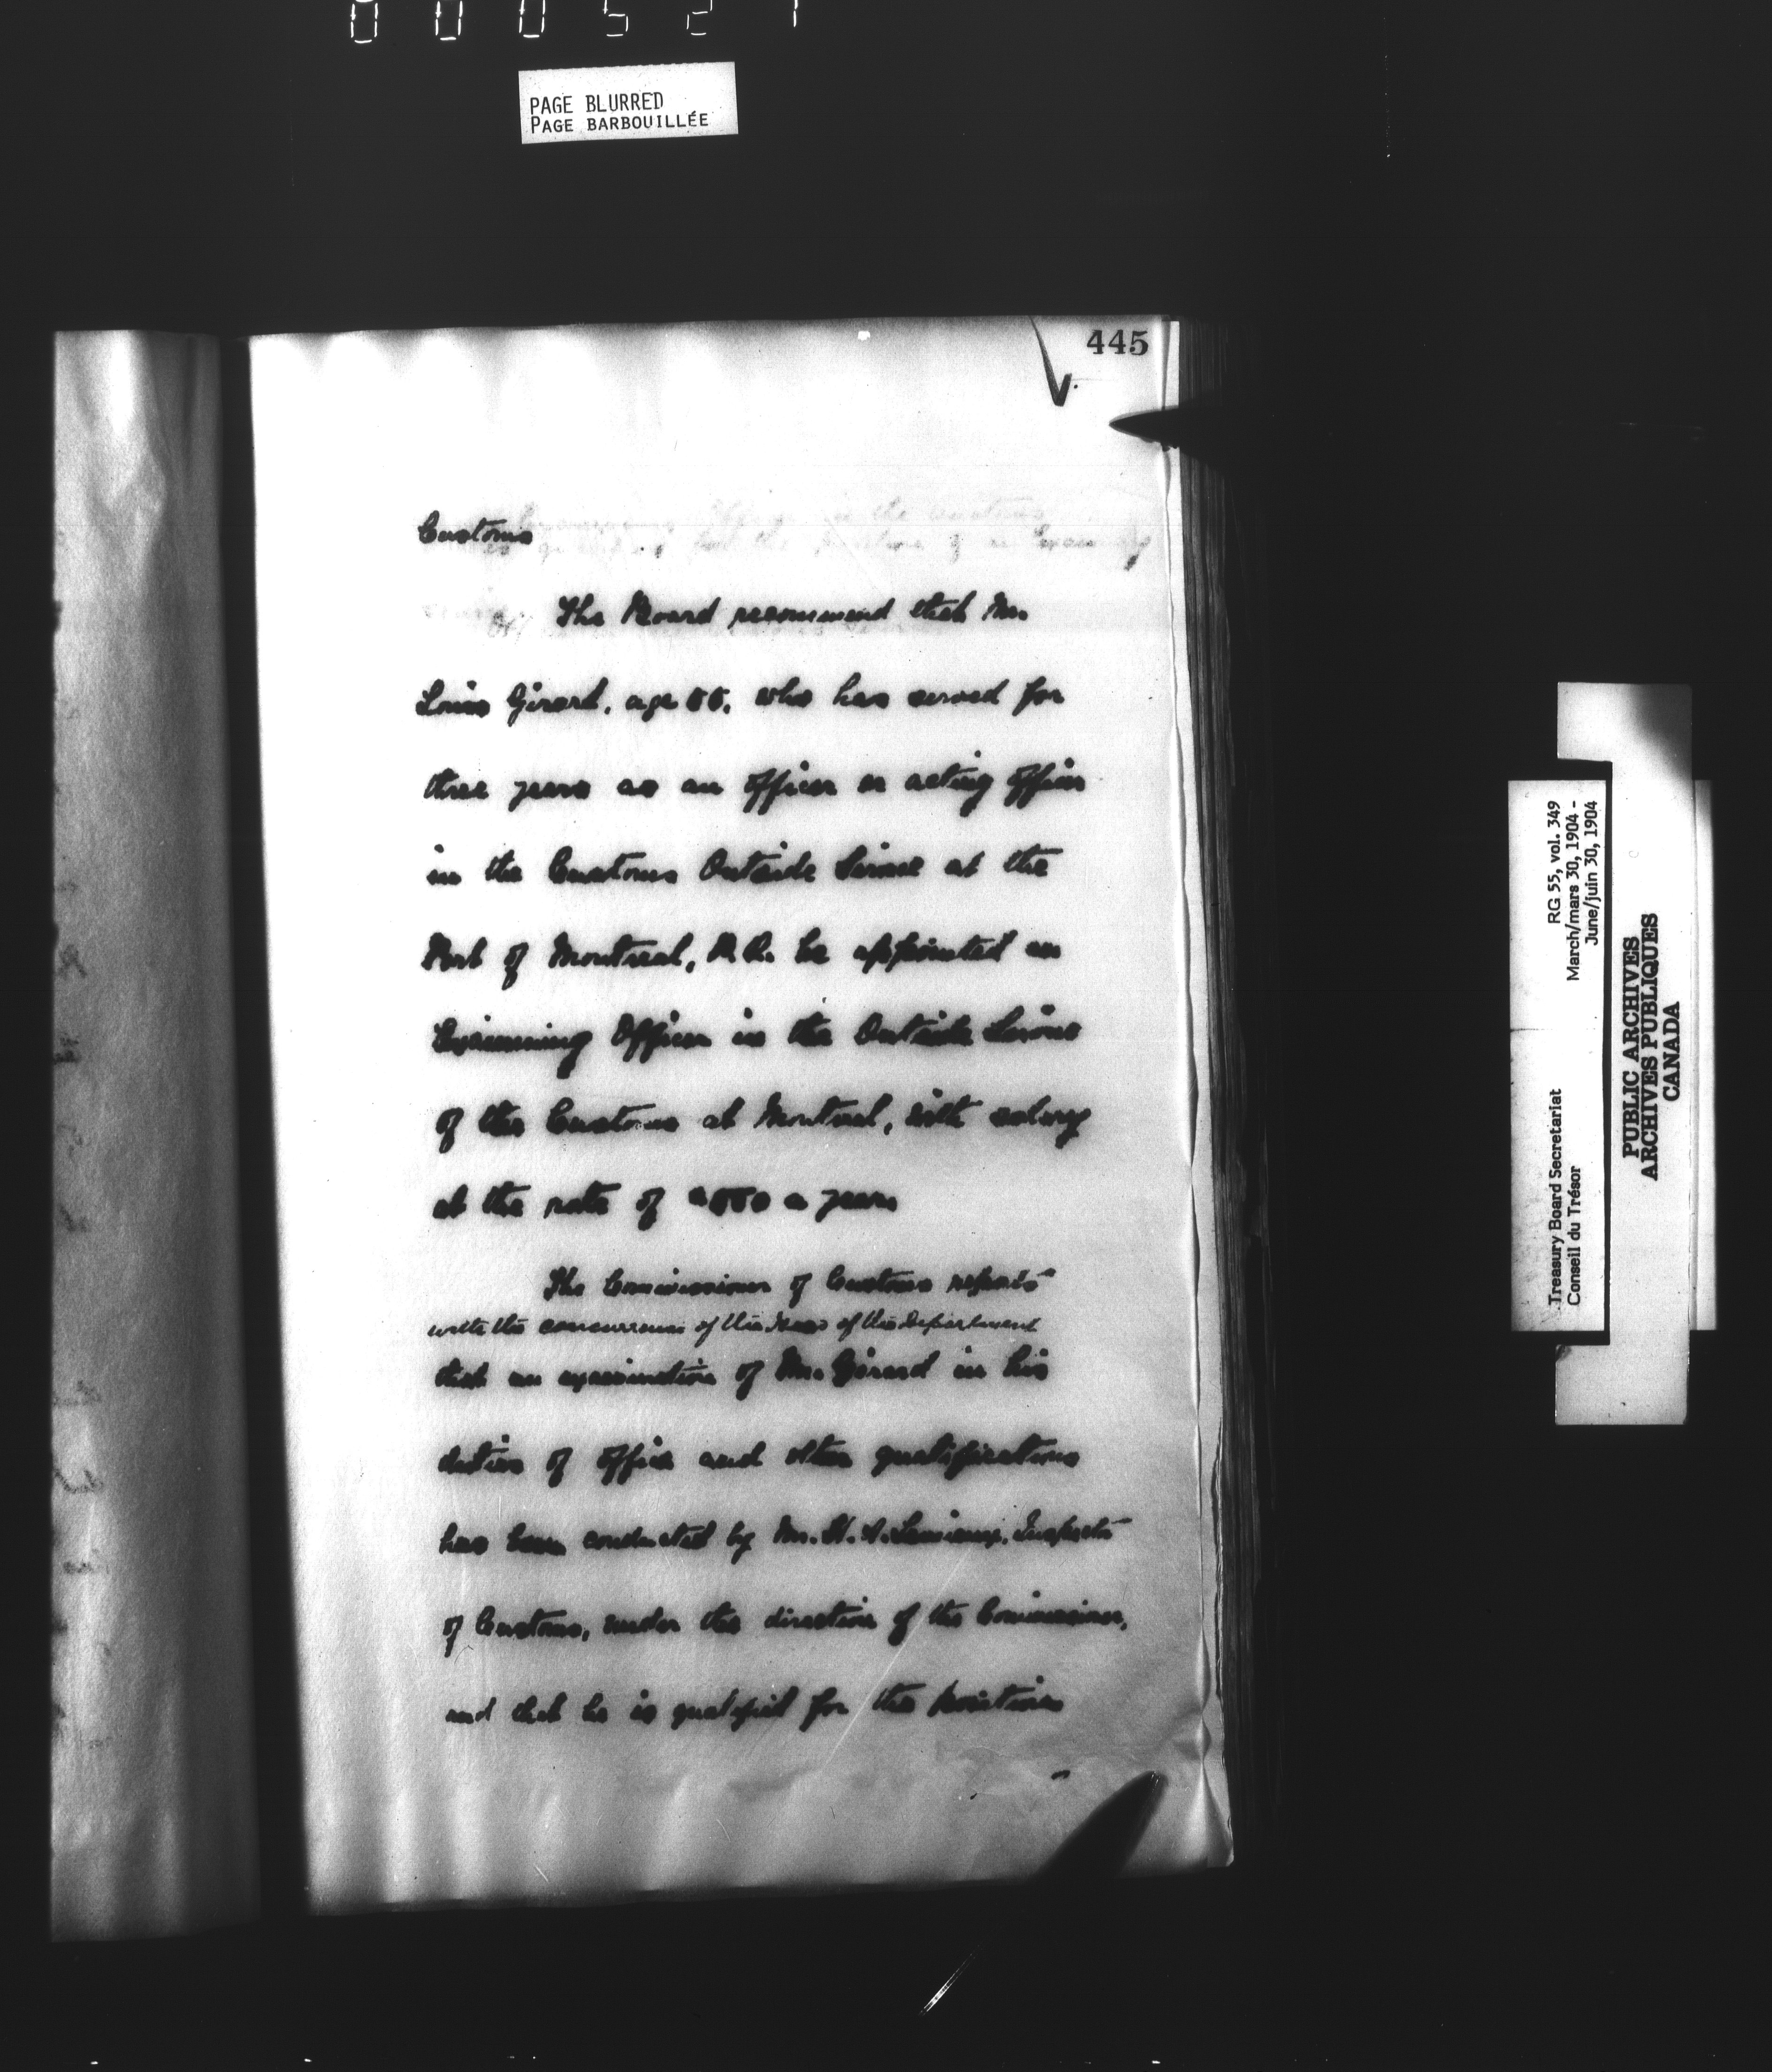 PAGE BLURRED
PAGE BARBOUILLÉE
445
Customs
The Board recommend that Mr.
Louis Girard, age 55, who has served for
three years as an officer or acting officer
in the Customs Outside Service at the
Port of Montreal, P.Q. be appointed an
Examining Officer in the Outside Service
of the Customs at Montreal, with salary
at the rate of a year
The Commissioner of Customs reports
with the concurrence of the Head of the Department
that an examination of Mr. Girard in his
duties of office and other qualifications
has been conducted by Mr. Inspector
of Customs, under the direction of the Commissioner,
and that he is qualified for the position
Treasury Board Secretariat RG 55, vol. 349
Conseil du Trésor March/mars 30, 1904 -
June/juin 30, 1904
PUBLIC ARCHIVES
ARCHIVES PUBLIQUES
CANADA